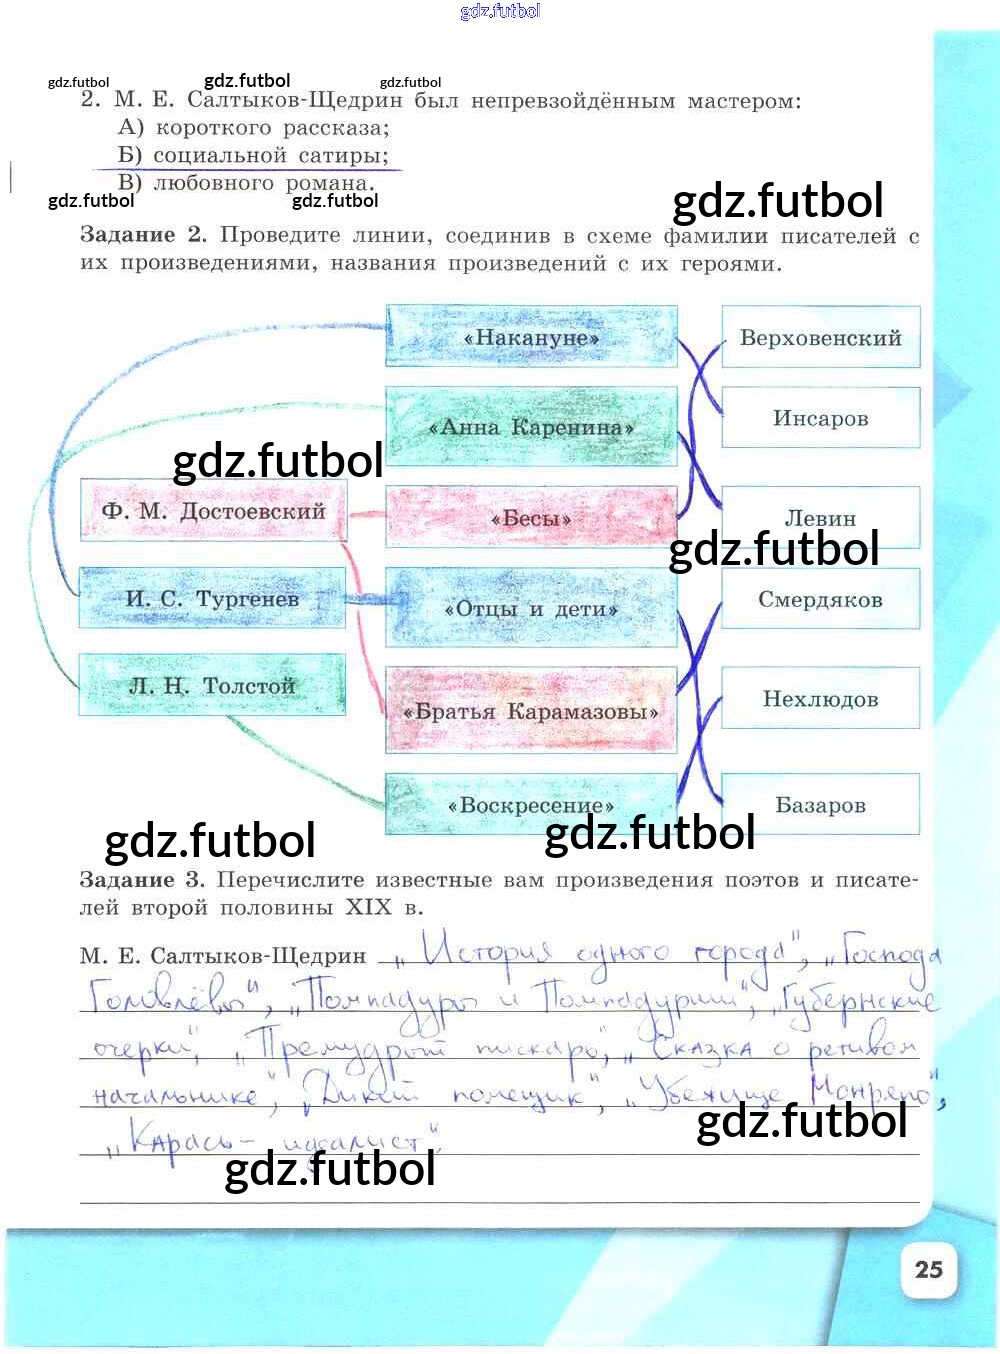 gdz.futbol
gdz.futbol gdz.futbol gdz.futbol
2. М. Е. Салтыков-Щедрин был непревзойдённым мастером:
А) короткого рассказа;
Б) социальной сатиры;
В) любовного романа.
gdz.futbol gdz.futbol gdz.futbol
Задание 2. Проведите линии, соединив в схеме фамилии писателей с
их произведениями, названия произведений с их героями.
«Накануне» Верховенский
«Анна Каренина» Инсаров
gdz.futbol
Ф. М. Достоевский «Бесы» Левин
gdz.futbol
И. С. Тургенев «Отцы и дети» Смердяков
Л. Н. Толстой «Братья Карамазовы» Нехлюдов
«Воскресение» Базаров
gdz.futbol gdz.futbol
Задание 3. Перечислите известные вам произведения поэтов и писате-
лей второй половины XIX в.
М. Е. Салтыков-Щедрин „История одного города", „Господа
Головлёвы", „Помпадуры и Помпадурши", „Губернские
очерки", „Премудрый пискарь", „Сказка о ретивом
начальнике", „Дикий помещик", „Убежище Монрепо",
gdz.futbol
„Карась-идеалист".
gdz.futbol
25